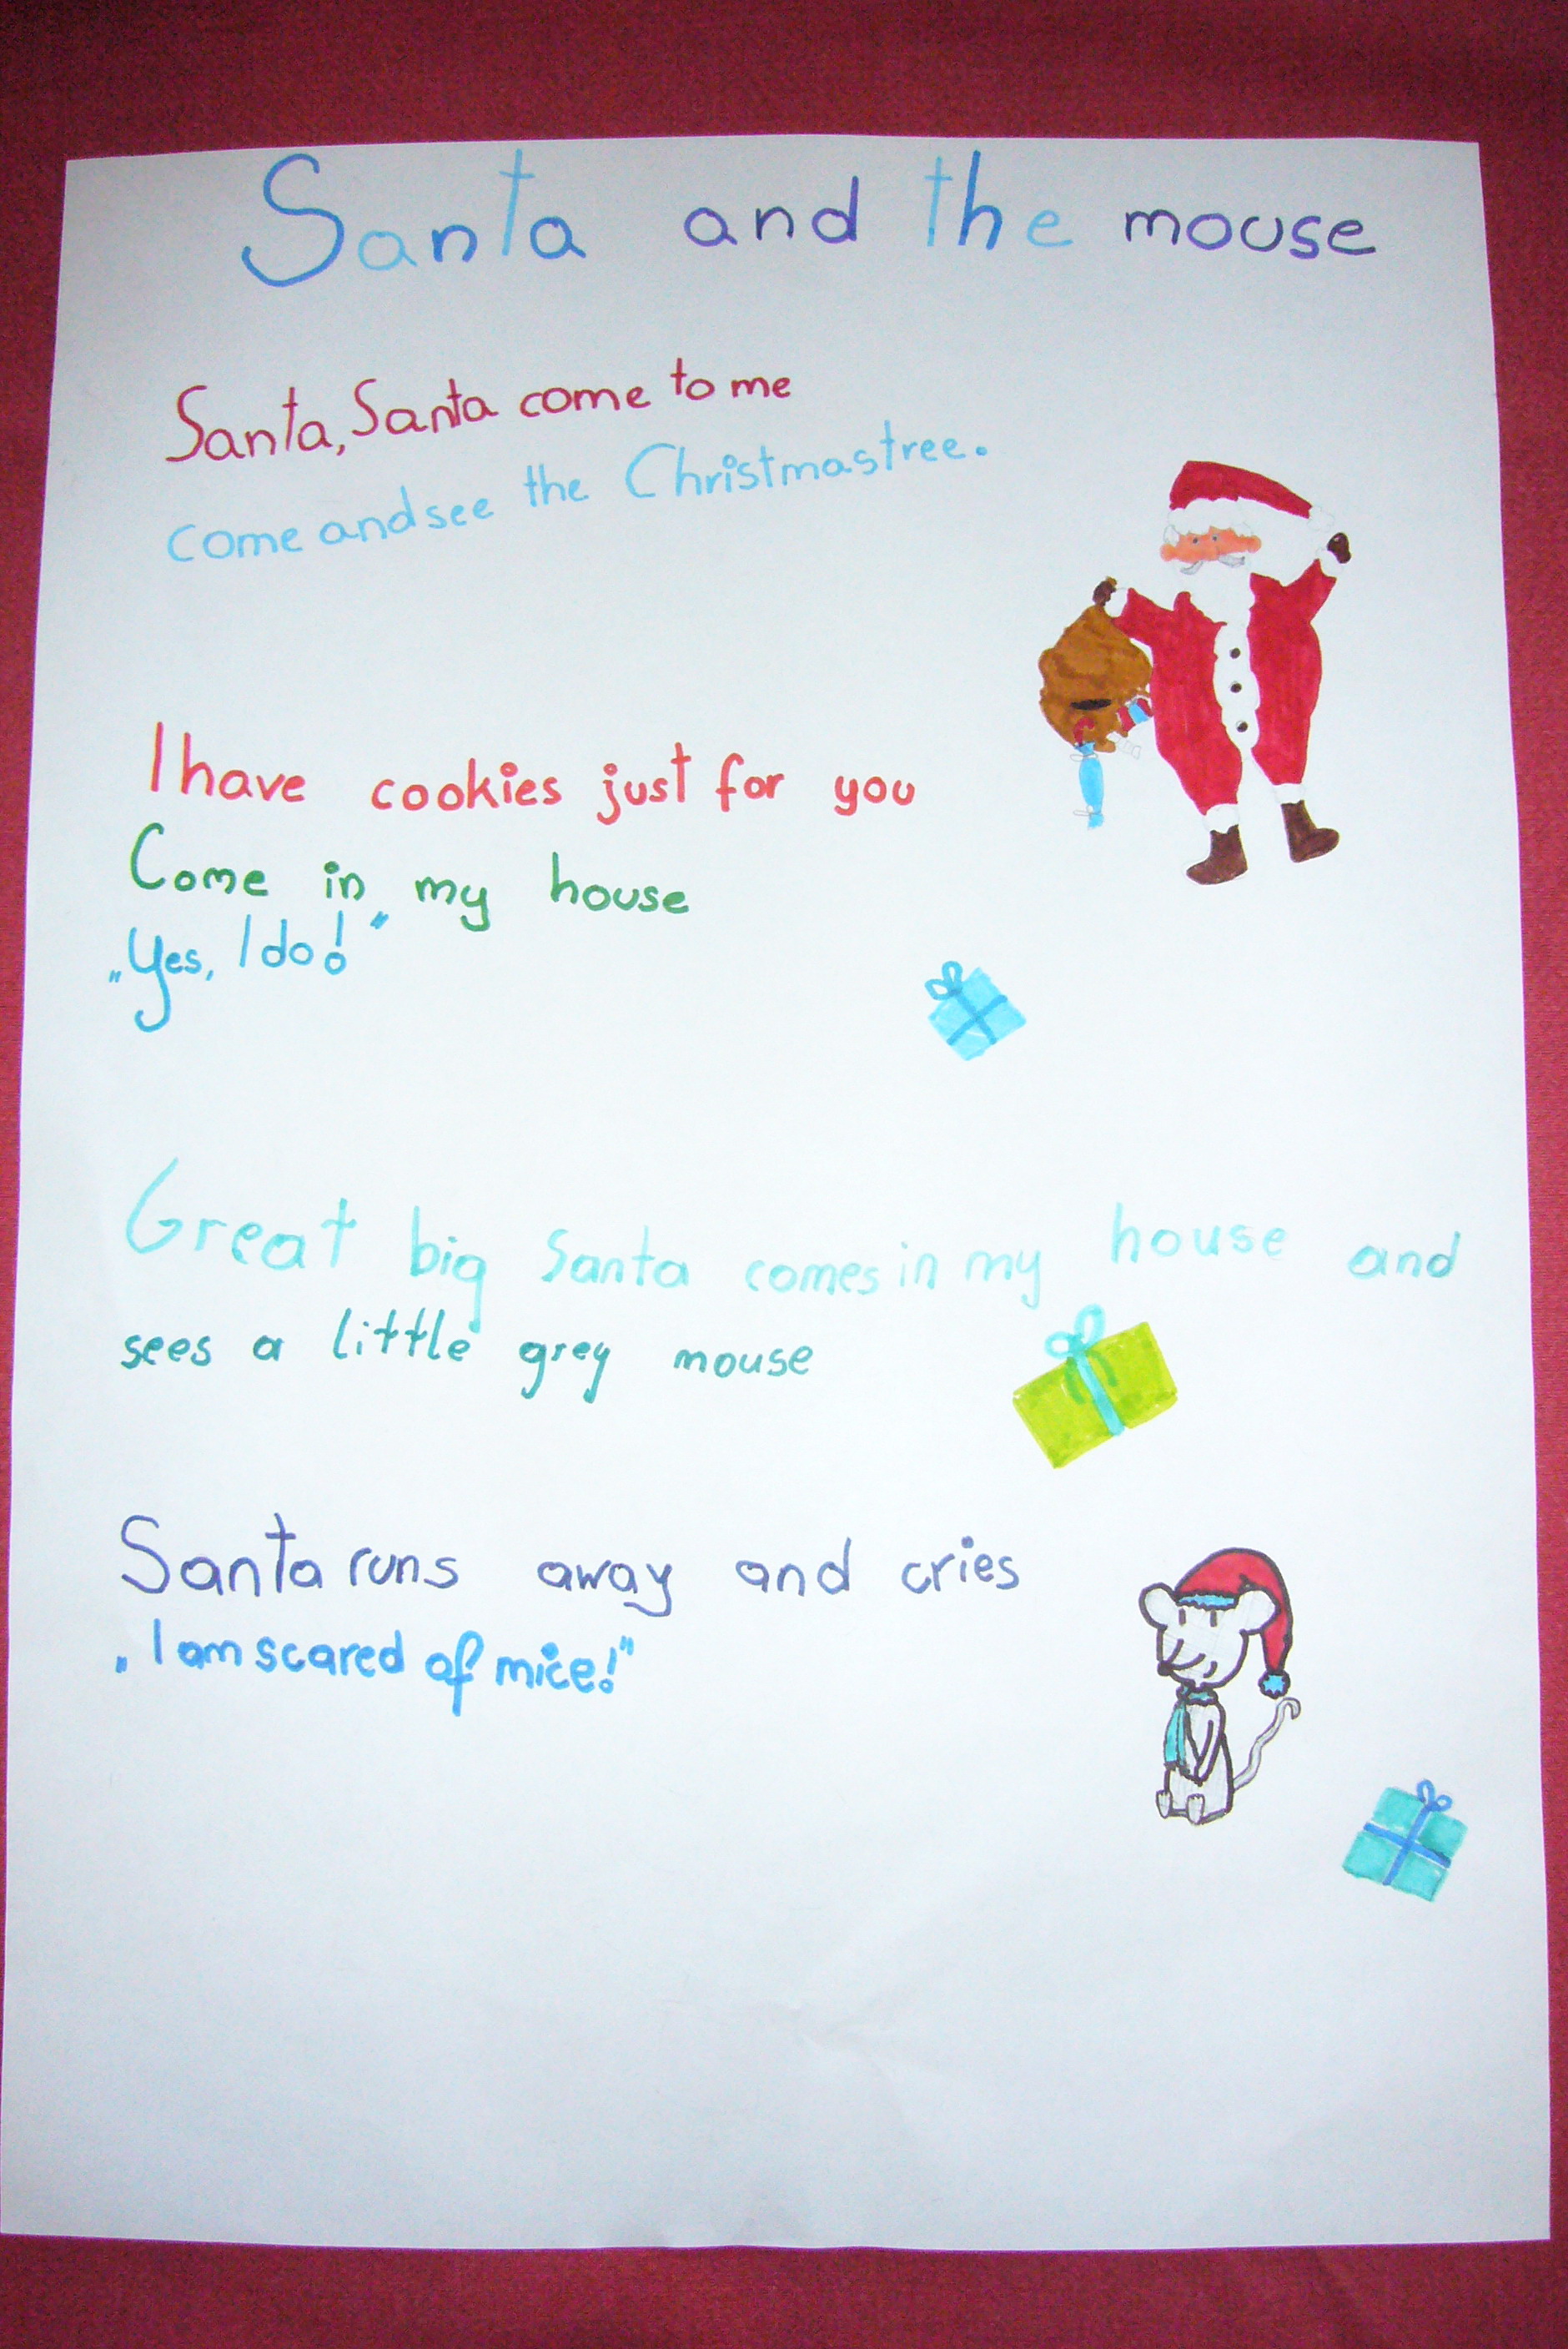 Santa and the mouse
Santa, Santa come to me
come and see the Christmastree.
I have cookies just for you
Come in my house
„Yes, I do!"
Great big Santa comes in my house and
sees a little grey mouse
Santa runs away and cries
„I am scared of mice!"